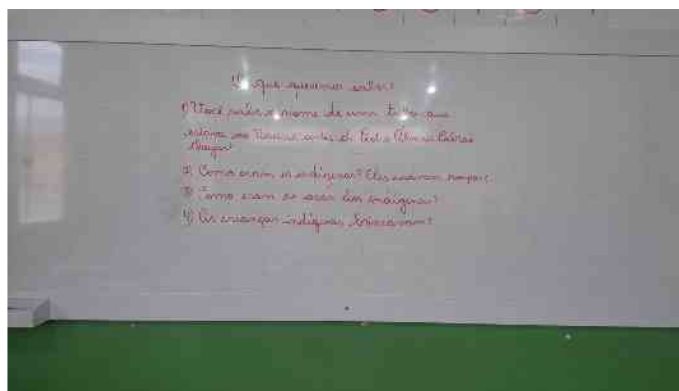 O que queremos saber?
1) Você sabia o nome de uma que
antes de Pedro Álvares Cabral
chegar?
2) Como eram os indígenas? Eles usavam roupas?
3) Como eram as casas dos indígenas?
4) As crianças indígenas brincavam?